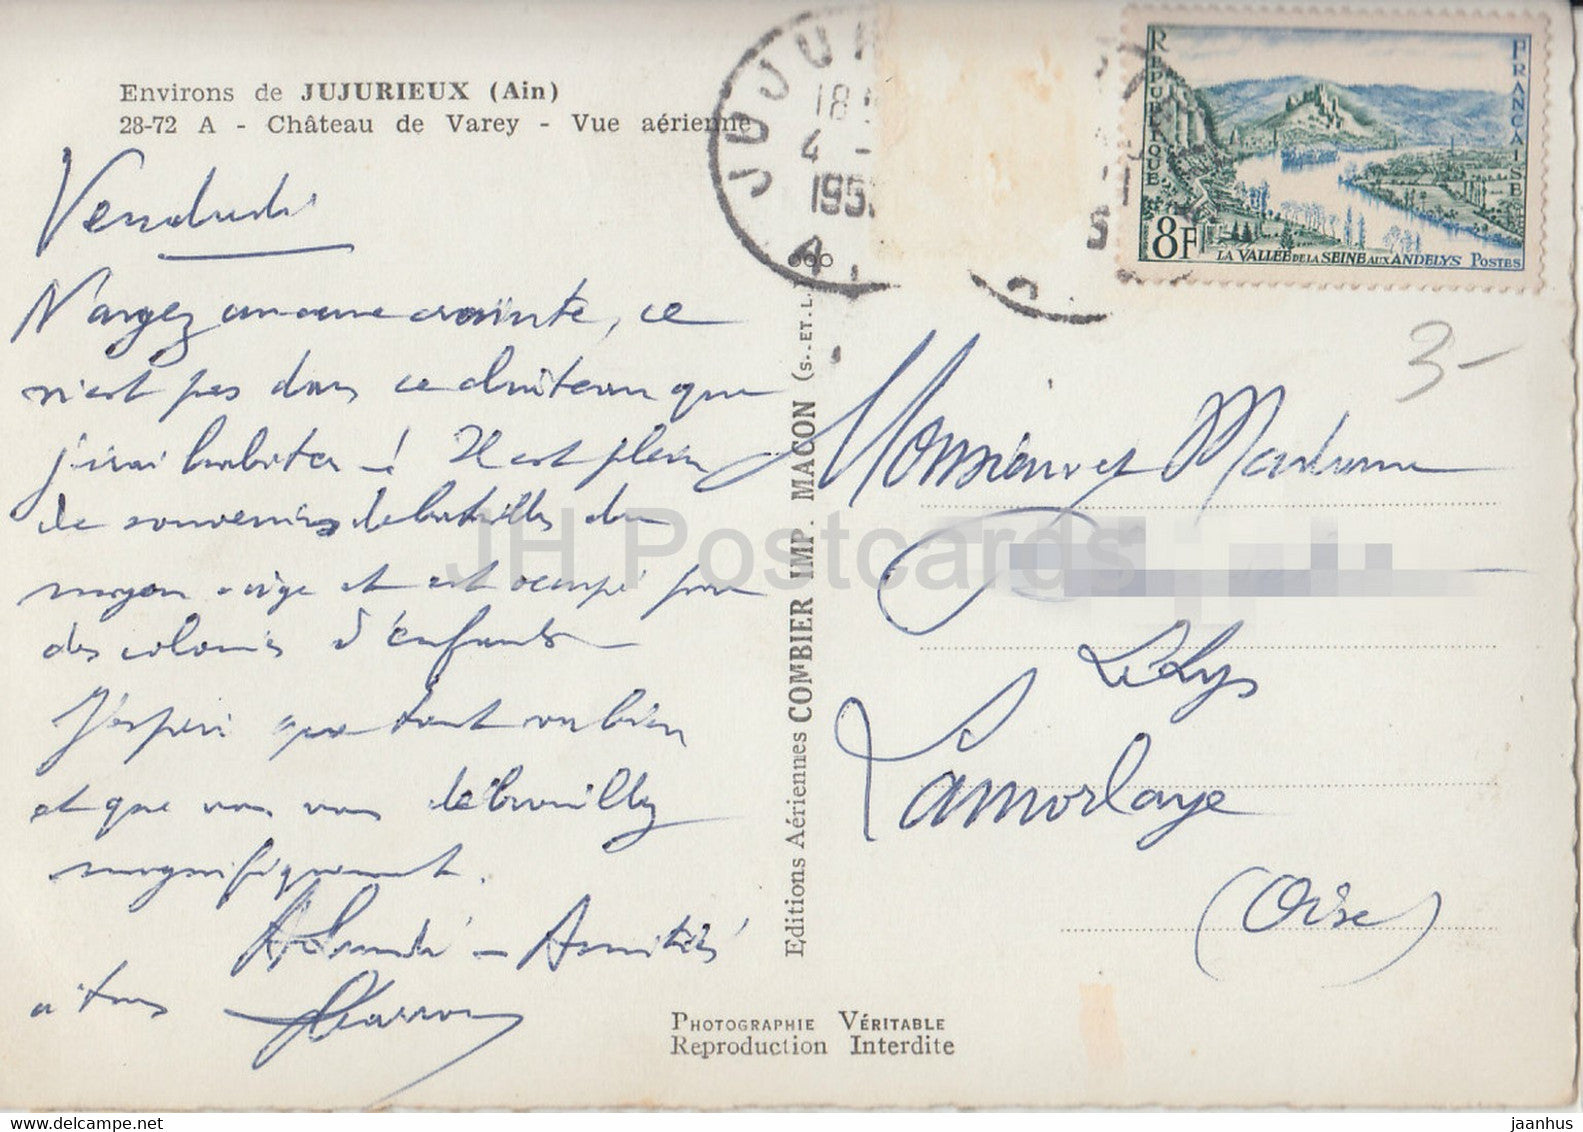 Environs de JUJURIEUX (Ain)
28-72 A - Château de Varey - Vue aérienne
Vendredi
N'ayez aucune crainte, ce
n'est pas dans ce château que
j'irai habiter ! Il est plein
de souvenirs de batailles du
moyen âge et est occupé par
des colonies d'enfants
J'espère que tout va bien
et que vous vous débrouillez
magnifiquement.
A lundi - Amitiés
à tous
JUJU
18
4 -
195
000
Editions Aériennes COMBIER IMP. MACON (S.. ET. L.)
REPUBLIQUE FRANCAISE
8F
LA VALLEE DE LA SEINE AUX ANDELYS POSTES
3-
Monsieur et Madame
Le Lys
Lamorlaye
(Oise)
PHOTOGRAPHIE VÉRITABLE
Reproduction Interdite
JH Postcards
jaanhus © delcampe.net